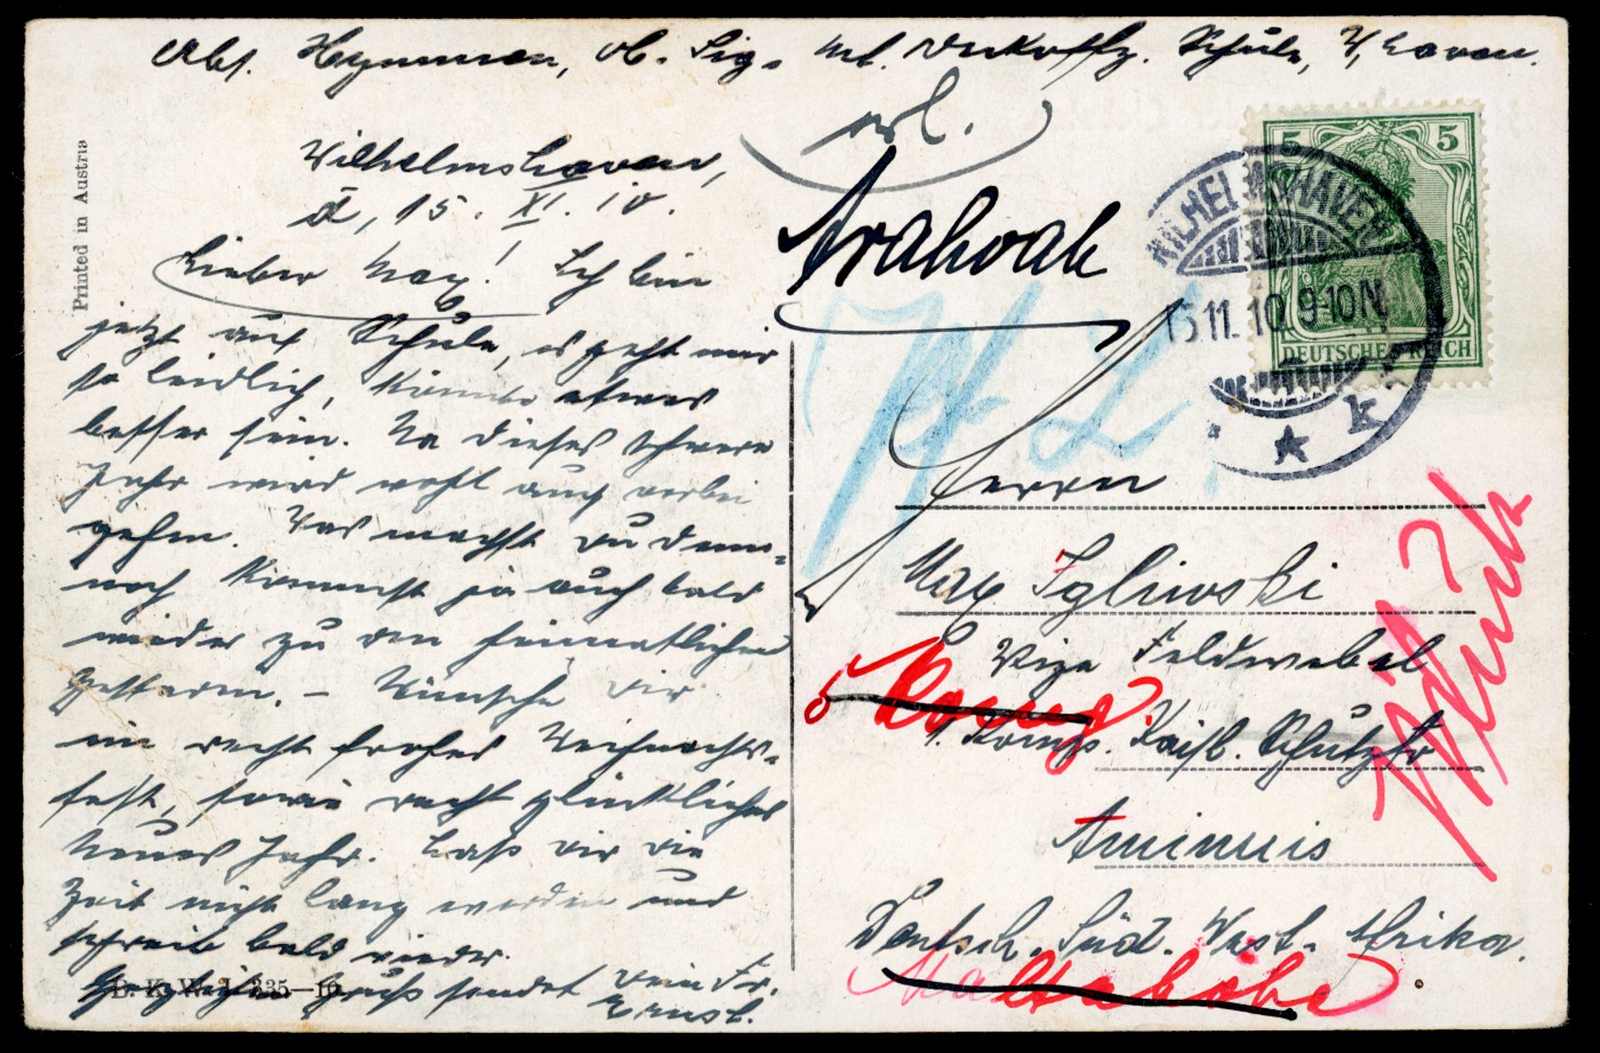 Abs. Heynman, Ob. Sig. Schule, W'haven.
Printed in Austria
Wilhelmshaven,
d, 15. XI. 10.
Lieber Max! Ich bin
jetzt auf Schule, es geht mir
so leidlich, könnte etwas
besser sein. Na dieses schwere
Jahr wird wohl auch vorbei
gehn. Was machst du denn,
noch kommst ja auch bald
wieder zu den heimatlichen
Wünsche dir
ein recht frohes Weihnachts-
fest, sowie recht glückliches
Neues Jahr. Laß dir die
Zeit nicht lang werden und
schreib bald wieder.
Herzlichen Gruß sendet dein Fr.
Ernst.
B. K. W. I. 335-10
Arahoab
5 5
DEUTSCHES REICH
WILHELMSHAVEN
15.11.10 9-10N
* k
Herrn
Max Igliwski
Vize Feldwebel
1. Komp. Kaisl. Schutztr
Aminuis
Deutsch. Süd. West. Afrika.
Maltahöhe